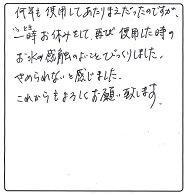 何年も使用してあたりまえだったのですが、
一時お休みをして、再び使用した時の
お水の感触のよいことびっくりしました。
やめられないと感じました。
これからもよろしくお願い致します。